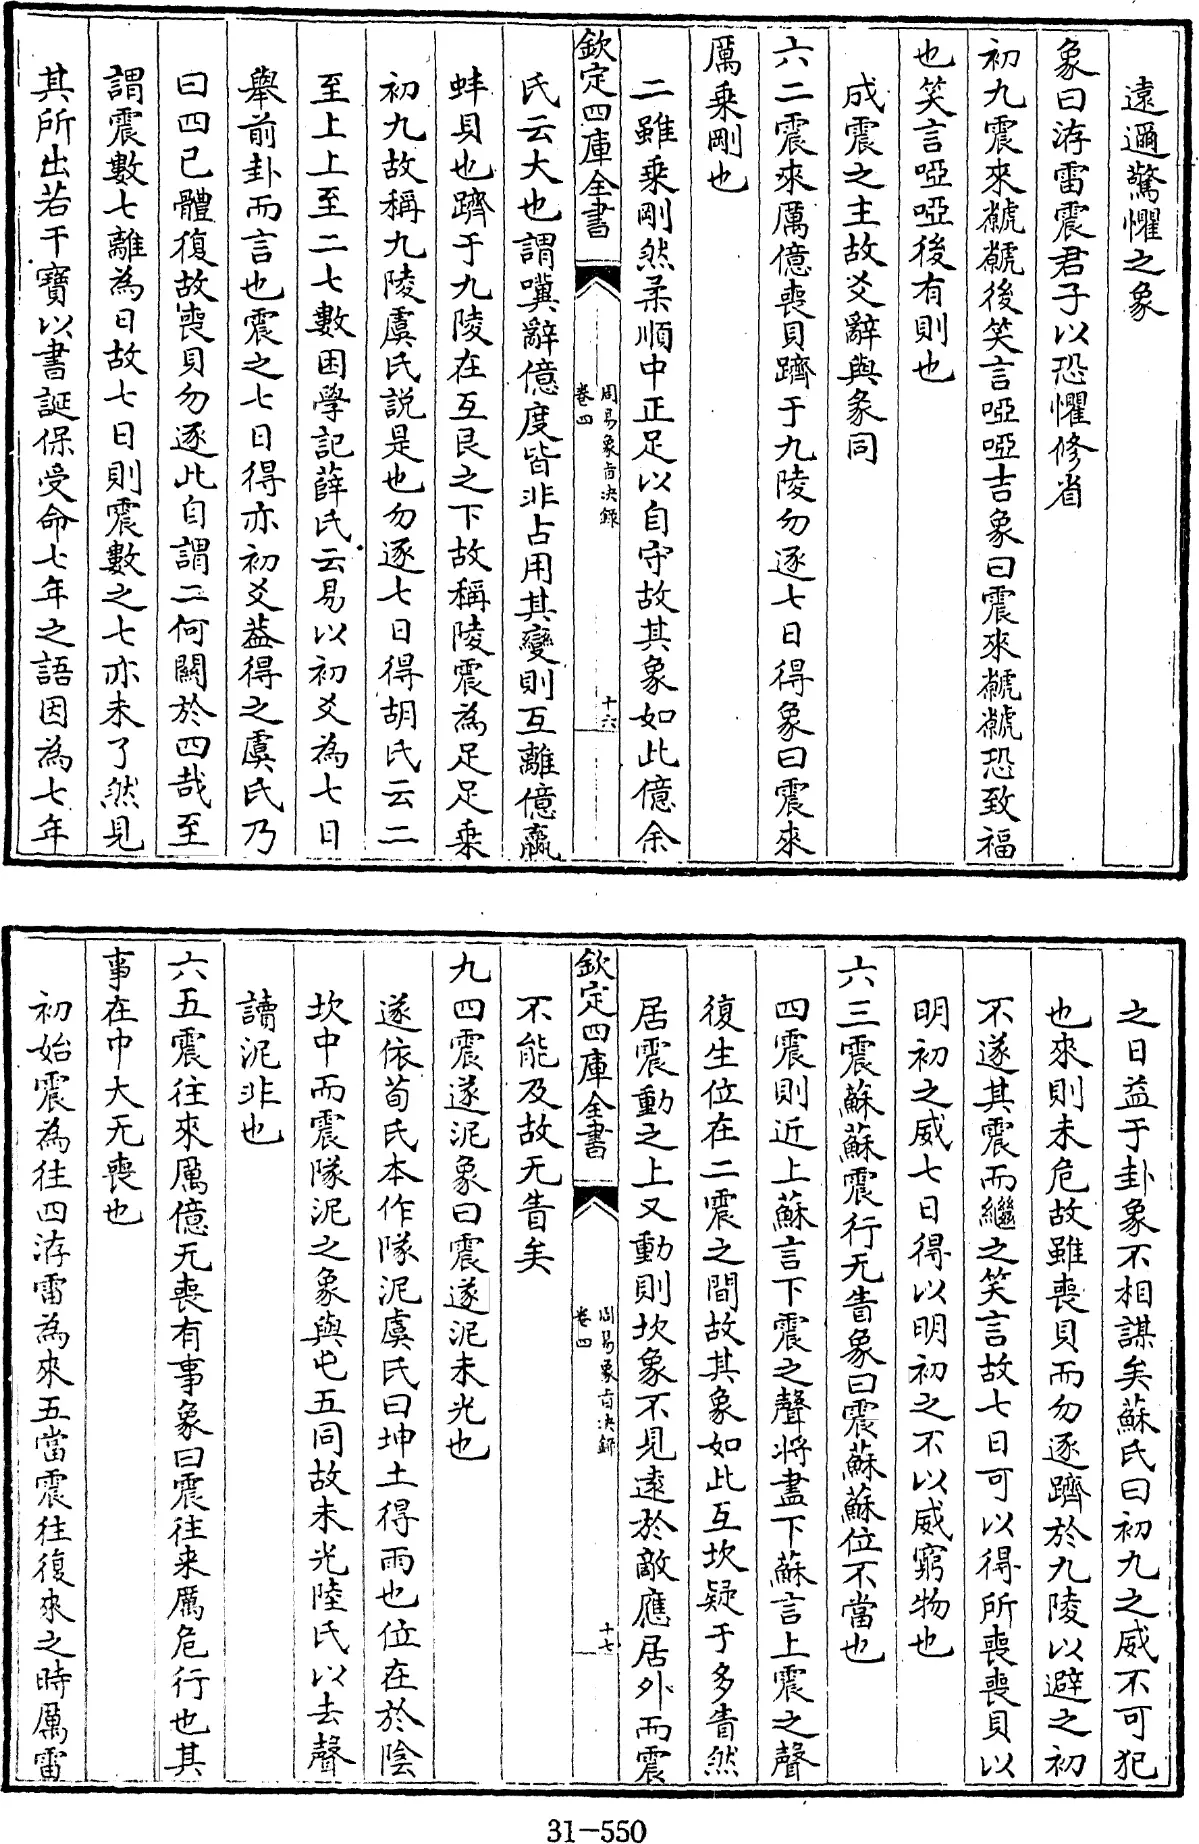 遠邇驚懼之象
象曰洊雷震君子以恐懼修省
初九震來虩虩後笑言啞啞吉象曰震來虩虩恐致福
也笑言啞啞後有則也
成震之主故爻辭與彖同
六二震來厲億喪貝躋于九陵勿逐七日得象曰震來
厲乗剛也
二雖乗剛然柔順中正足以自守故其象如此億余
欽定四庫全書
周易象㫖決錄
卷四
十六
氏云大也謂嘆辭億度皆非占用其變則互離億蠃
蚌貝也躋于九陵在互艮之下故稱陵震為足足乗
初九故稱九陵虞氏説是也勿逐七日得胡氏云二
至上上至二七數困學記薛氏云易以初爻為七日
舉前卦而言也震之七日得亦初爻葢得之虞氏乃
曰四已體復故喪貝勿逐此自謂二何關於四哉至
謂震數七離為日故七日則震數之七亦未了然見
其所出若干寶以書誕保受命七年之語因為七年
之日益于卦象不相謀矣蘇氏曰初九之威不可犯
也來則未危故雖喪貝而勿逐躋於九陵以避之初
不遂其震而繼之笑言故七日可以得所喪喪貝以
明初之威七日得以明初之不以威窮物也
六三震蘇蘇震行无眚象曰震蘇蘇位不當也
四震則近上蘇言下震之聲將盡下蘇言上震之聲
復生位在二震之間故其象如此互坎疑于多眚然
居震動之上又動則坎象不見逺於敵應居外而震
欽定四庫全書
周易象㫖決錄
卷四
十七
不能及故无眚矣
九四震遂泥象曰震遂泥未光也
遂依荀氏本作隊泥虞氏曰坤土得雨也位在於陰
坎中而震隊泥之象與屯五同故未光陸氏以去聲
讀泥非也
六五震往來厲億无喪有事象曰震往来厲危行也其
事在巾大无喪也
初始震為往四洊雷為來五當震往復來之時厲雷
31-550